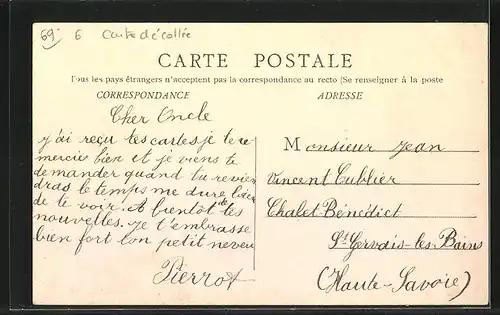 69 6 Carte décollée
CARTE POSTALE
Tous les pays étrangers n'acceptent pas la correspondance au recto (Se renseigner à la poste
CORRESPONDANCE ADRESSE
Cher Oncle
j'ai reçu tes cartes je te re
mercie bien et je viens te
demander quand tu revien
dras le temps me dure bien
de te voir. A bientôt de tes
nouvelles. Je t'embrasse
bien fort ton petit neveu
Pierrot
Monsieur Jean
Vincent Cublier
Chalet Bénédict
St Gervais-les-Bains
(Haute-Savoie)